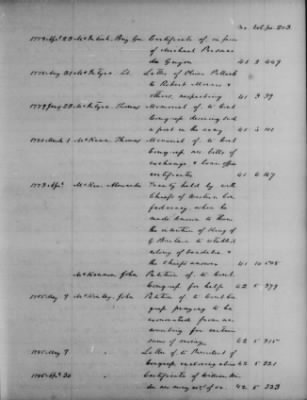 No. Vol. Pa. 203
1778 Apl 22 McIntosh, Brig Gen Certificate of in favor
of Michael
Surgeon 41 3 449
1778 Aug 23 McIntyre Lt. Letter of Oliver Pollock
to Robert Morris &
others, respecting 41 3 39
1779 23 McIntyre, Thomas Memorial of to Cont
Congress desiring
a post in the army 41 5 141
1780 March 1 McKean Thomas Memorial of to Cont
Congress bills of
exchange & loan office
certificates 41 6 167
1773 Apl McKee Alexander Treaty held by with
Chiefs of Western Con-
federacy, when he
made known to them
the intention of King of
G Britain to establish
colony of Vandalia &
the Chiefs answer 41 10 505
McKinnon John Petition of to Cont
Congress for help 42 5 379
1785 May 9 McKinley John Petition of to Cont Con-
gress praying to be
exonerated from ac-
counting for certain
sums of money 42 5 315
1785 May 9 " Letter of to President of
Congress 42 5 321
1785 Apl 30 " Certificate of William
of 42 5 323